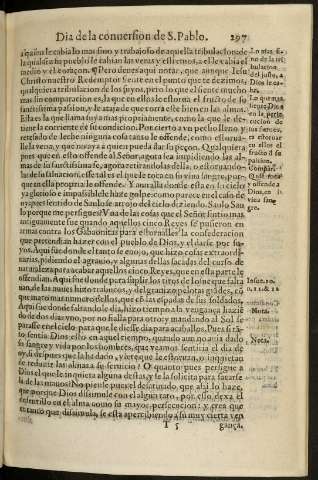 Dia de la conuersion de S. Pablo. 297
a quiẽ le cabia lo mas fino y trabajoso de aquella tribulacion de
la qual si a su pueblo le cabian las venas y estremos, a el le cabia el
medio y el coraçon. ¶ Pero deueys aqui notar, que aunque Iesu
Christo nuestro Redemptor siente en el punto que te dezimos,
qualquiera tribulacion de los suyos, pero lo que el siente mucho
mas sin comparacion es, la que en ellos le estorua el fructo de su
sanctissima passion, y le ataja de que corra este bien en las almas.
Esta es la que llama suya mas propriamente, como la que le de
tiene la corriente de su condicion. Por cierto a vn pecho lleno y
retesado de leche ninguna cosa tanto le offende, como estorua-
lle la vena, y que no vaya a quien pueda dar su poçon. Qualquiera
pues que en esto offende al Señor agora sea impidiendo las al-
mas de su sanctissima fe, agora retirandolas della, o estoruando-
las de su saluacion, esse tal es el que le toca en su viua sangre, por-
que en ella propria le offende. Y a una alla donde esta en su cielo
y glorioso e impassible le haze golpe: como parece en el caso de
oy, pues sentido de Saulo se arrojo del cielo diziendo. Saulo Sau
lo porque me persigues? Vna de las cosas que el Señor sintio mas
antiguamente fue quando aquellos cinco Reyes se pusieron en
arma contra los Gabaonitas para estoruarles la confederacion
que pretendian hazer con el pueblo de Dios, y el darse por su-
yos. Aqui fue donde el tanto se enojo, que hizo cosas extraordi-
narias, pidiendo el agrauio, y algunas dellas sacadas del curso de
naturaleza para acabar aquellos cinco Reyes, que en esta parte le
offendian. Aqui fue donde para suplir los tiros de
nas, de las nuues hizo trabucos, y del granizo pelotas grãdes, cõ
que mato mas numero dellos, que cõ las espadas de sus soldados,
aqui fue donde faltando le dia, hizo tẽpo a la vengança haziẽ
do de dos dias vno, por no faltar otro: y mandando al Sol se
parasse en el cielo para que le diesse dia para acaballos. Pues si tã-
to sentia Dios esto en aquel tiempo, quando aun no auia dado
su sangre y vida por los hombres, que veamos sentiria el dia de
oy di despues que la ha dado, ver te que le estoruan, o inquietan
te reduzir las almas a su seruicio? O quanto pues persigue a
Dios el que le inquieta alguna destas, y se la solicita para sacarse
la de las manos? No piense pues el desatinado, que ahi lo haze,
que porque Dios dissimule con el algun rato, por esso, dexa el
de sufrillo en el alma como su mayor persecucion: y crea que
en tanto que dissimula, se esta apercibiendo a su muy cierta ven
T 5 gança,
Lo mas fi-
no de la tri
bulacion
del justo, a
Dios le ca-
be.
La que mas
siente Dios
en la perse
cucion de
los suyos,
es estoruar
en ellos el
fructo d su
passion.
Compara-
Quiẽ toca
y offende a
Dios, en su
viua san-
gre.
Iosue. 10.
Nota.
Nota,